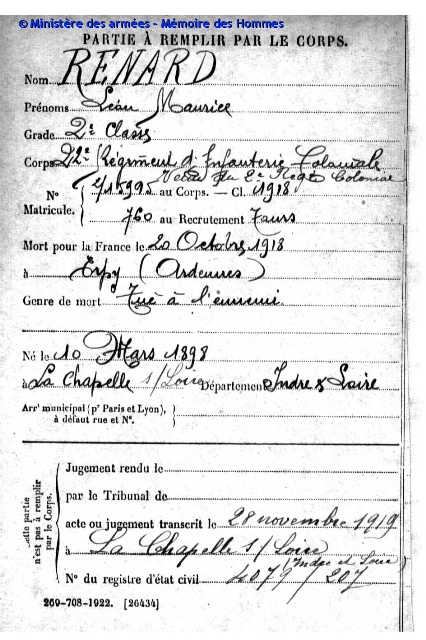 © Ministère des armées - Mémoire des Hommes
PARTIE À REMPLIR PAR LE CORPS.
Nom RENARD
Prénoms Léon Maurice
Grade 2e Classe
Corps 22e Régiment d'Infanterie Coloniale
du 2e Regt Colonial
N° 15995 au Corps. — Cl. 1918
Matricule. 760 au Recrutement Tours
Mort pour la France le 20 Octobre 1918
à (Ardennes)
Genre de mort Tué à l'ennemi
Né le 10 Mars 1898
à La Chapelle s/Loire Département Indre & Loire
Arr' municipal (p' Paris et Lyon),
à défaut rue et N°.
Cette partie
n'est pas à remplir
par le Corps.
Jugement rendu le
par le Tribunal de
acte ou jugement transcrit le 28 novembre 1919
à La Chapelle s/ Loire
(Indre et Loire)
N° du registre d'état civil 4079/207
269-708-1922. [26434]